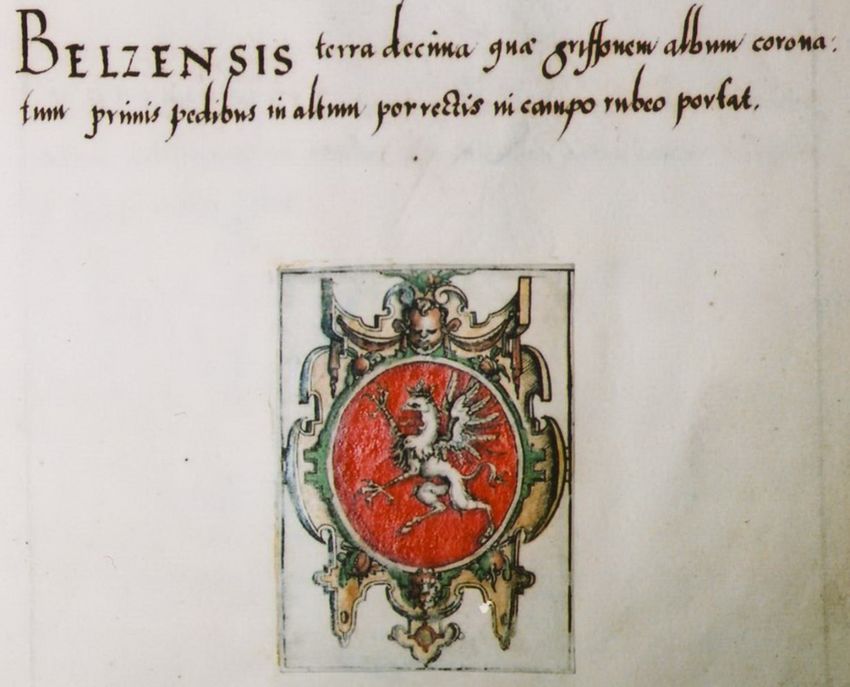 BELZENSIS terra decima quæ griffonem album corona:
tum primis pedibus in altum porrectis in campo rubeo portat.